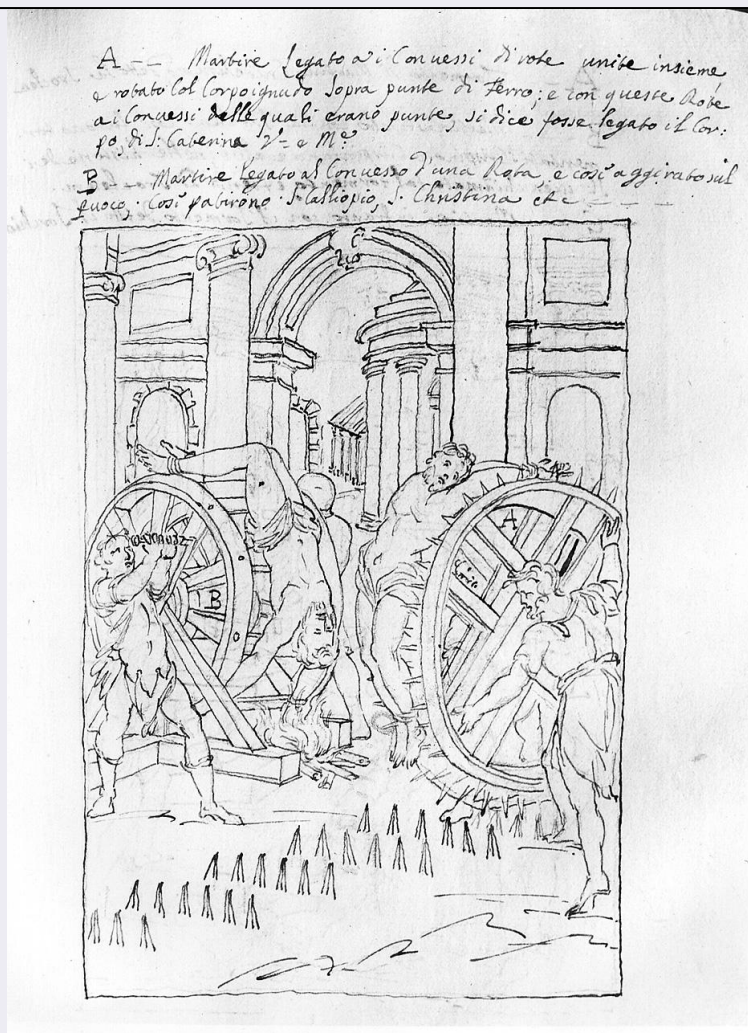 A -- Martire Legato a i Convessi di rote unite insieme
e rotato Col Corpo ignudo sopra punte di Ferro; e con queste Rote
a i Convessi delle quali erano punte, si dice fosse legato il Cor:
po, di S. Caterina V. e M.e
B Martire Legato al Convesso d'una Rota, e così aggirato sul
fuoco, Così patirono S. Calliopio, S. Christina etc
A
B